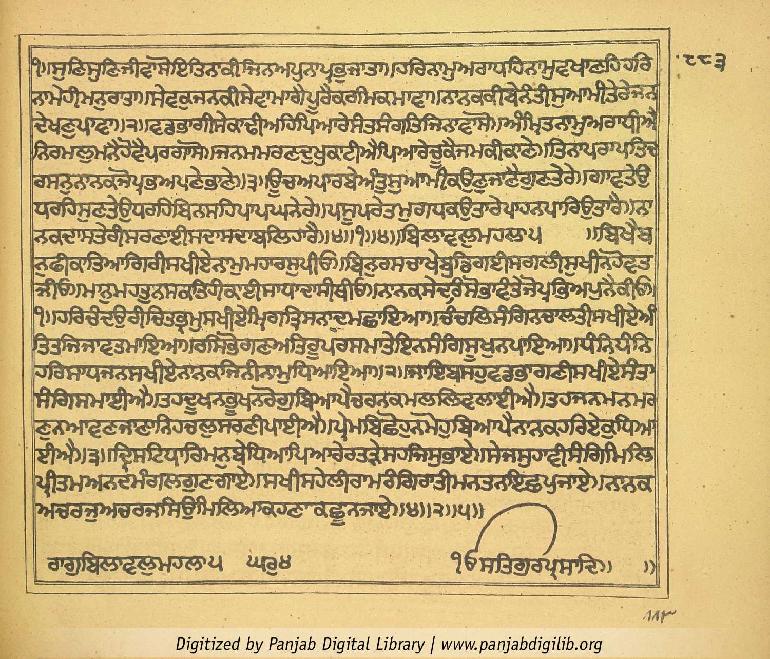 ੧॥ਸੁਣਿਸੁਣਿਜੀਵਾਸੋਇਤਿਨਾਕੀਜਿਨਅਪੁਨਾਪ੍ਰਭੁਜਾਤਾ॥ਹਰਿਨਾਮੁਅਰਾਧਹਿਨਾਮੁਵਖਾਣਹਿਹਰਿ ੮੮੩
ਨਾਮੇਹੀਮਨੁਰਾਤਾ॥ਸੇਵਕਜਨਕੀਸੇਵਾਮਾਗੈਪੂਰੈਕਰਮਿਕਮਾਵਾ॥ਨਾਨਕਕੀਬੇਨੰਤੀਸੁਆਮੀਤੇਰੇਜਨ
ਦੇਖਣੁਪਾਵਾ॥੨॥ਵਡਭਾਗੀਸੇਕਾਢੀਅਹਿਪਿਆਰੇਸੰਤਸੰਗਤਿਜਿਨਾਵਾਸੋ॥ਅੰਮ੍ਰਿਤਨਾਮੁਅਰਾਧੀਐ
ਨਿਰਮਲੁਮਨੈਹੋਵੈਪਰਗਾਸੋ॥ਜਨਮਮਰਣਦੁਖੁਕਾਟੀਐਪਿਆਰੇਚੂਕੈਜਮਕੀਕਾਣੇ॥ਤਿਨਾਪਰਾਪਤਿਦ
ਰਸਨੁਨਾਨਕਜੋਪ੍ਰਭਅਪਣੇਭਾਣੇ॥੩॥ਊਚਅਪਾਰਬੇਅੰਤਸੁਆਮੀਕਉਣੁਜਾਣੈਗੁਣਤੇਰੇ॥ਗਾਵਤੇਉ
ਧਰਹਿਸੁਣਤੇਉਧਰਹਿਬਿਨਸਹਿਪਾਪਘਨੇਰੇ॥ਪਸੂਪਰੇਤਮੁਗਧਕਉਤਾਰੇਪਾਹਨਪਾਰਿਉਤਾਰੈ॥ਨਾ
ਨਕਦਾਸਤੇਰੀਸਰਣਾਈਸਦਾਸਦਾਬਲਿਹਾਰੈ॥੪॥੧॥੪॥ਬਿਲਾਵਲੁਮਹਲਾ੫ ॥ਬਿਖੈਬ
ਨੁਫੀਕਾਤਿਆਗਿਰੀਸਖੀਏਨਾਮੁਮਹਾਰਸੁਪੀਓ॥ਬਿਨੁਰਸਚਾਖੇਬੁਡਿਗਈਸਗਲੀਸੁਖੀਨਹੋਵਤ
ਜੀਓ॥ਮਾਨੁਮਹਤੁਨਸਕਤਿਹੀਕਾਈਸਾਧਾਦਾਸੀਥੀਓ॥ਨਾਨਕਸੇਦਰਿਸੋਭਾਵੰਤੇਜੋਪ੍ਰਭਿਅਪੁਨੈਕੀਓ॥
੧॥ਹਰਿਚੰਦਉਰੀਚਿਤਭ੍ਰਮੁਸਖੀਏਮ੍ਰਿਗਤ੍ਰਿਸਨਾਦ੍ਰੁਮਛਾਇਆ॥ਚੰਚਲਿਸੰਗਿਨਚਾਲਤੀਸਖੀਏਅੰ
ਤਿਤਜਿਜਾਵਤਮਾਇਆ॥ਰਸਿਭੋਗਣਅਤਿਰੂਪਰਸਮਾਤੇਇਨਸੰਗਿਸੂਖੁਨਪਾਇਆ॥ਧੰਨਿਧੰਨਿ
ਹਰਿਸਾਧਜਨਸਖੀਏਨਾਨਕਜਿਨੀਨਾਮੁਧਿਆਇਆ॥੨॥ਜਾਇਬਸਹੁਵਡਭਾਗਣੀਸਖੀਏਸੰਤਾ
ਸੰਗਿਸਮਾਈਐ॥ਤਹਦੂਖਨਭੂਖਨਰੋਗੁਬਿਆਪੈਚਰਨਕਮਲਲਿਵਲਾਈਐ॥ਤਹਜਨਮਨਮਰ
ਣੁਨਆਵਣਜਾਣਾਨਿਹਚਲੁਸਰਣੀਪਾਈਐ॥ਪ੍ਰੇਮਬਿਛੋਹਨਮੋਹੁਬਿਆਪੈਨਾਨਕਹਰਿਏਕੁਧਿਆ
ਈਐ॥੩॥ਦ੍ਰਿਸਟਿਧਾਰਿਮਨੁਬੇਧਿਆਪਿਆਰੇਰਤੜੇਸਹਜਿਸੁਭਾਏ॥ਸੇਜਸੁਹਾਵੀਸੰਗਿਮਿਲਿ
ਪ੍ਰੀਤਮਅਨਦਮੰਗਲਗੁਣਗਾਏ॥ਸਖੀਸਹੇਲੀਰਾਮਰੰਗਿਰਾਤੀਮਨਤਨਇਛਪੁਜਾਏ॥ਨਾਨਕ
ਅਚਰਜੁਅਚਰਜਸਿਉਮਿਲਿਆਕਹਣਾਕਛੂਨਜਾਏ॥੪॥੨॥੫॥
ਰਾਗੁਬਿਲਾਵਲੁਮਹਲਾ੫ ਘਰੁ੪ ੴਸਤਿਗੁਰਪ੍ਰਸਾਦਿ॥ ॥
Digitized by Panjab Digital Library | www.panjabdigilib.org